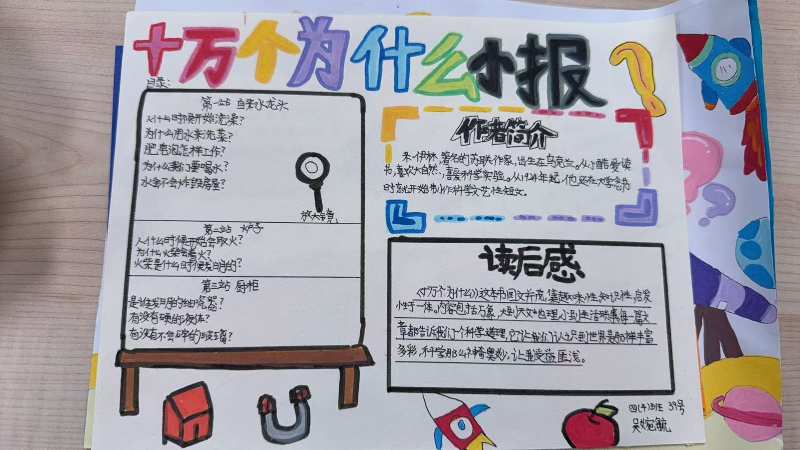 十万个为什么小报
目录:
第一站 自来水龙头
人什么时候开始洗澡?
为什么用水来洗菜?
肥皂泡怎样工作?
为什么我们要喝水?
水会不会炸毁房屋?
放大镜
第二站 炉子
人什么时候开始会取火?
为什么火柴会着火?
火柴是什么时候发明的?
第三站 厨柜
是谁发明的细瓷器?
有没有硬的液体?
有没有不会碎的玻璃?
作者简介
米·伊林,著名的苏联作家,出生在乌克兰。从小酷爱读
书,喜欢大自然,喜爱科学实验。从1924年起,他还在大学念书
时就开始创作科学文艺性短文。
读后感
《十万个为什么》这本书图文并茂,集趣味性知识性,启发
性于一体。内容包括万象,大到天文地理小到生活琐事每一篇文
章都告诉我们一个科学道理,它让我们认识到世界是如何丰富
多彩,科学那么神奇奥妙,让我受益匪浅。
四(4)班 39号